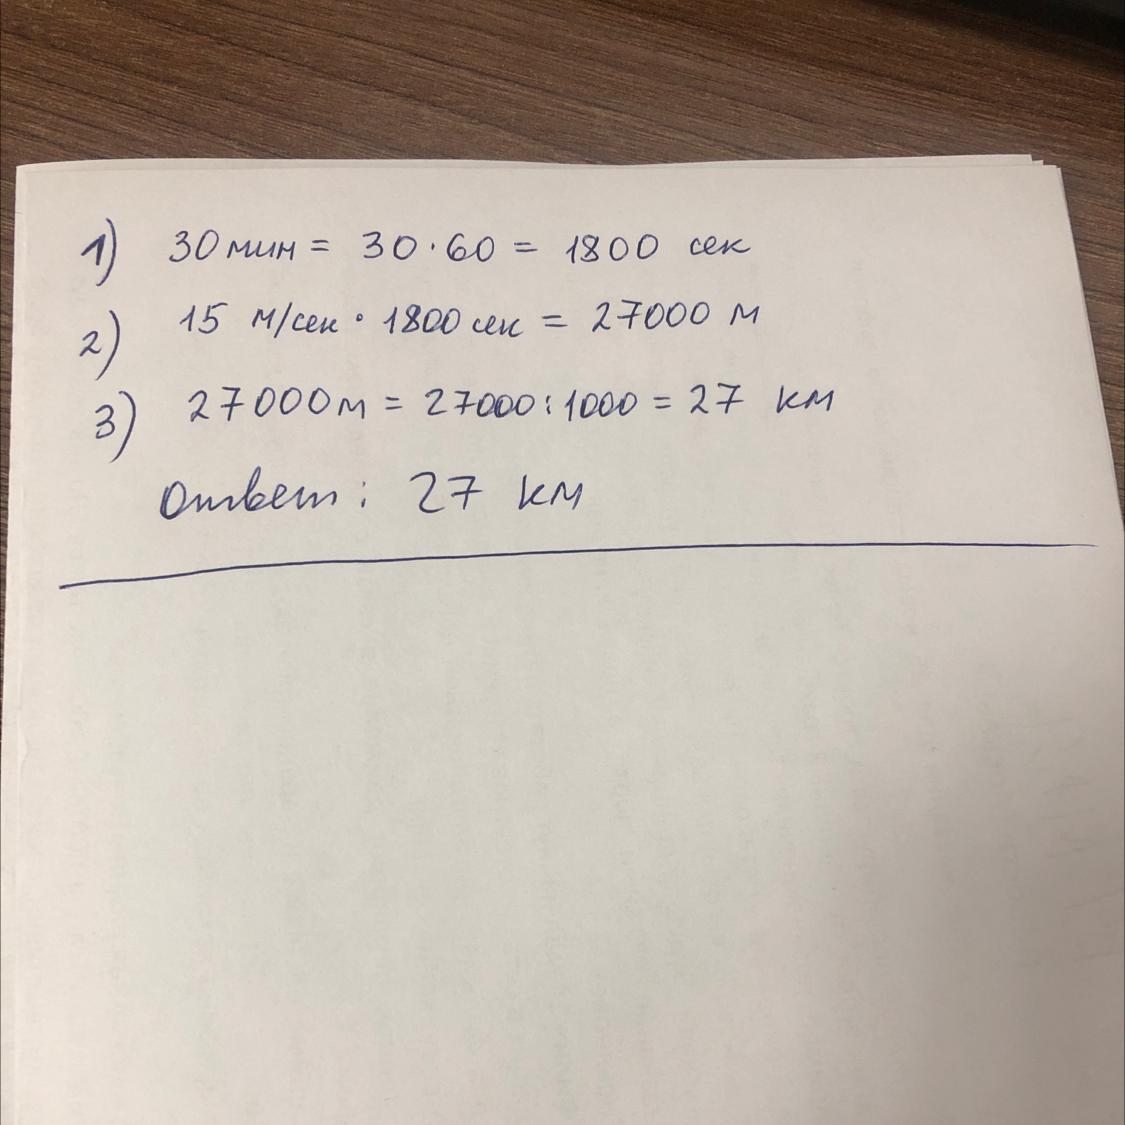 1) 30 мин = 30 · 60 = 1800 сек
2) 15 м/сек · 1800 сек = 27000 м
3) 27000 м = 27000 : 1000 = 27 км
Ответ: 27 км